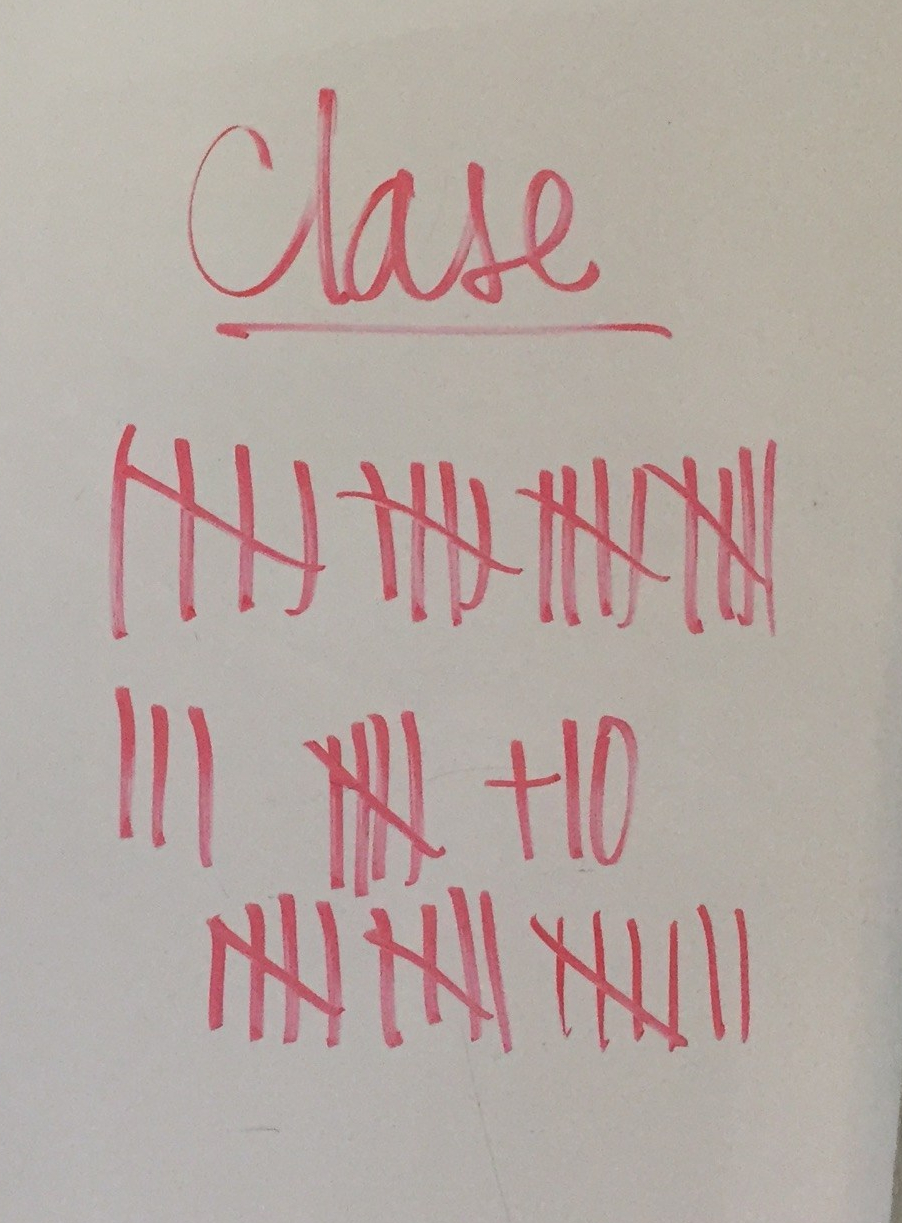 Clase
||||| ||||| ||||| |||||
||| ||||| +10
||||| ||||| ||||| ||